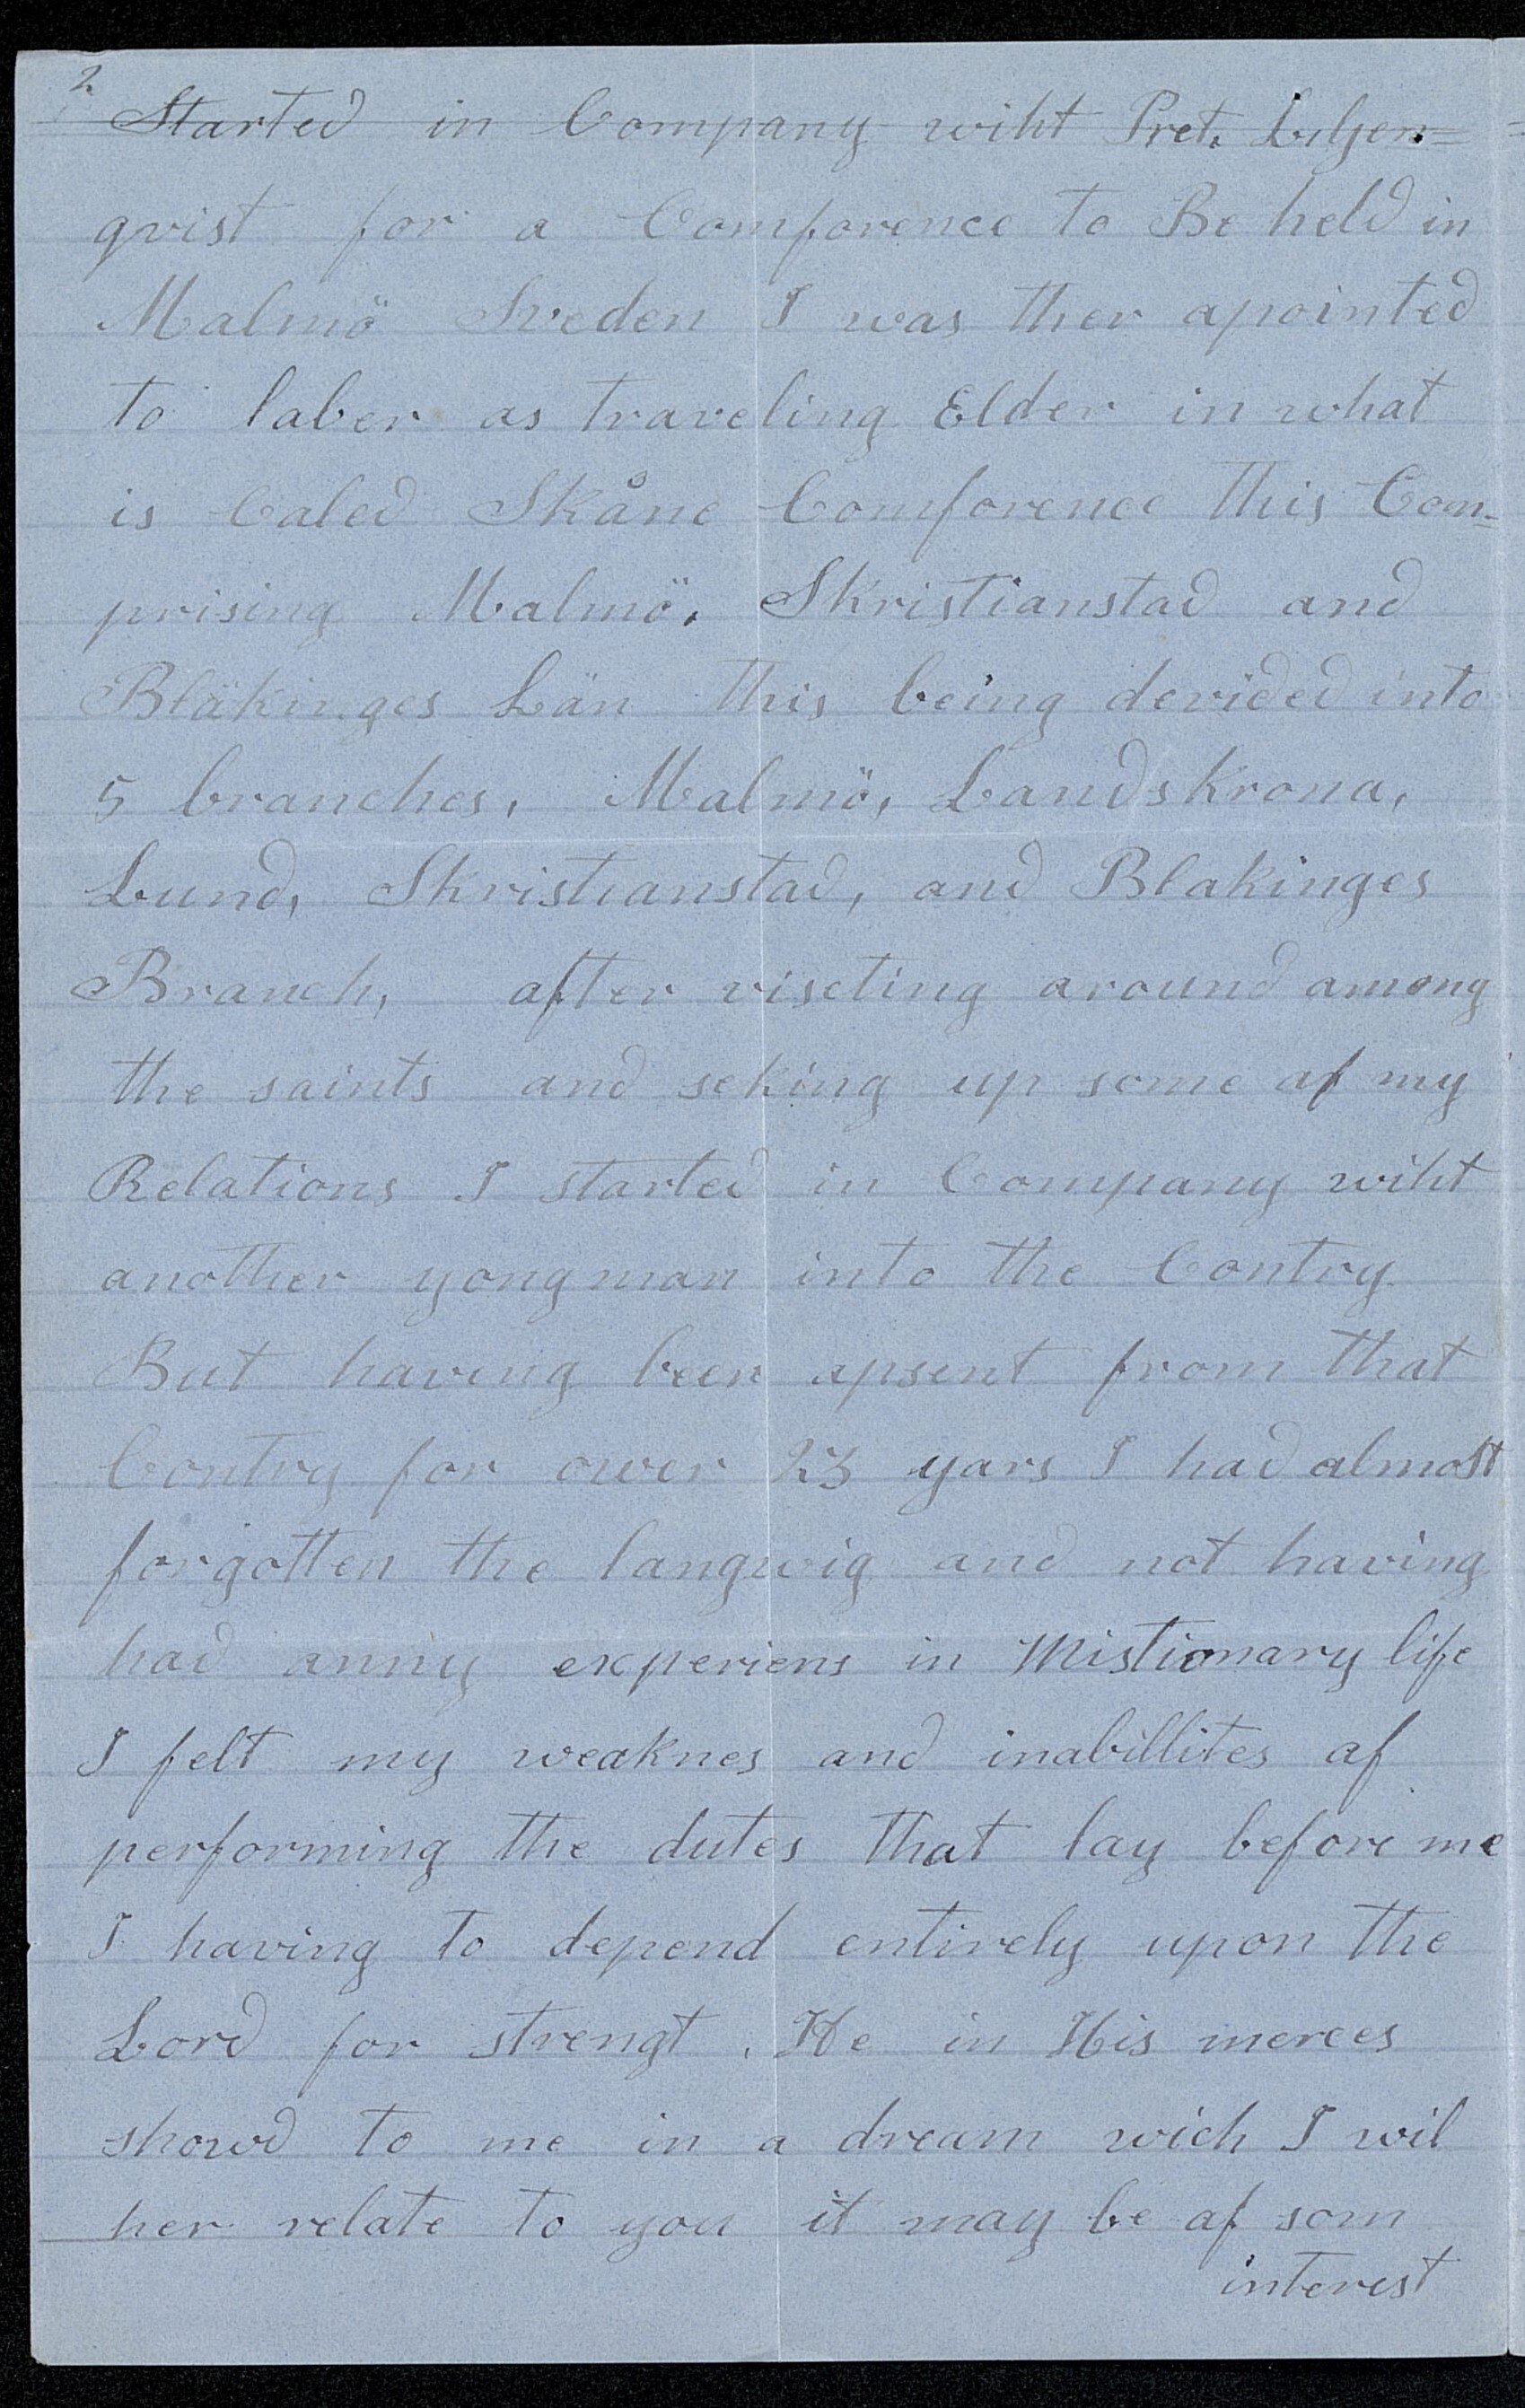 2
Started in Company wiht Pret. Liljen=
qvist for a Comforence to Be held in
Malmö Sveden I was ther apointed
to laber as traveling Elder in what
is Caled Skåne Comforence this Com=
prising Malmö, Skristianstad and
Bläkinges Län this being devided into
5 branches, Malmö, Landskrona,
Lund, Skristianstad, and Blakinges
Branch, after viseting around among
the saints and seking up some af my
Relations I started in Company wiht
another yong man into the Contry
But having been apsent from that
Contry for ower 23 yars I had almost
forgotten the langwig and not having
had anny experiens in Mistionary life
I felt my weaknes and inabillites af
performing the dutes that lay before me
I having to depend entirely upon the
Lord for strengt. He in His merces
showd to me in a dream wich I wil
her relate to you it may be af som
interest